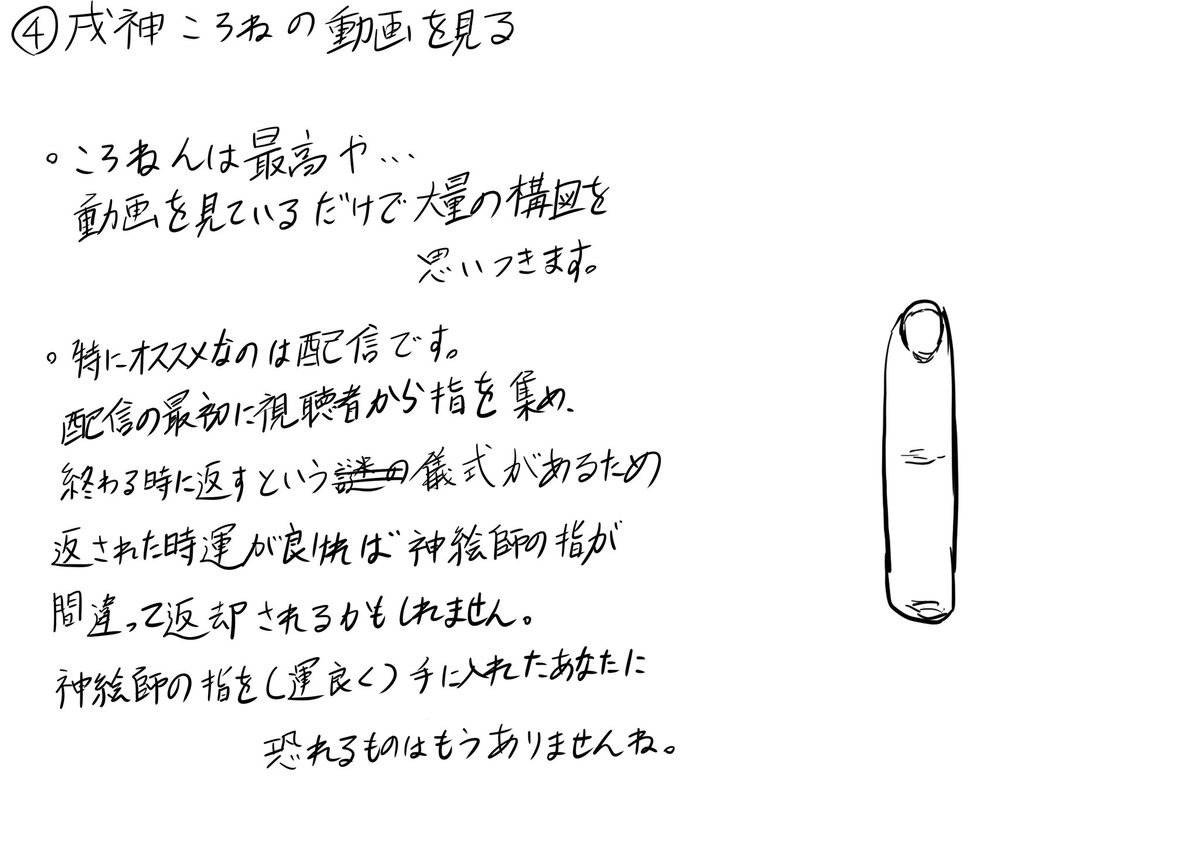 ④戌神ころねの動画を見る
。ころねんは最高や…
動画を見ているだけで大量の構図を
思いつきます。
。特にオススメなのは配信です。
配信の最初に視聴者から指を集め、
終わる時に返すという謎の儀式があるため
返された時運が良ければ神絵師の指が
間違って返却されるかもしれません。
神絵師の指を(運良く)手に入れたあなたに
恐れるものはもうありませんね。